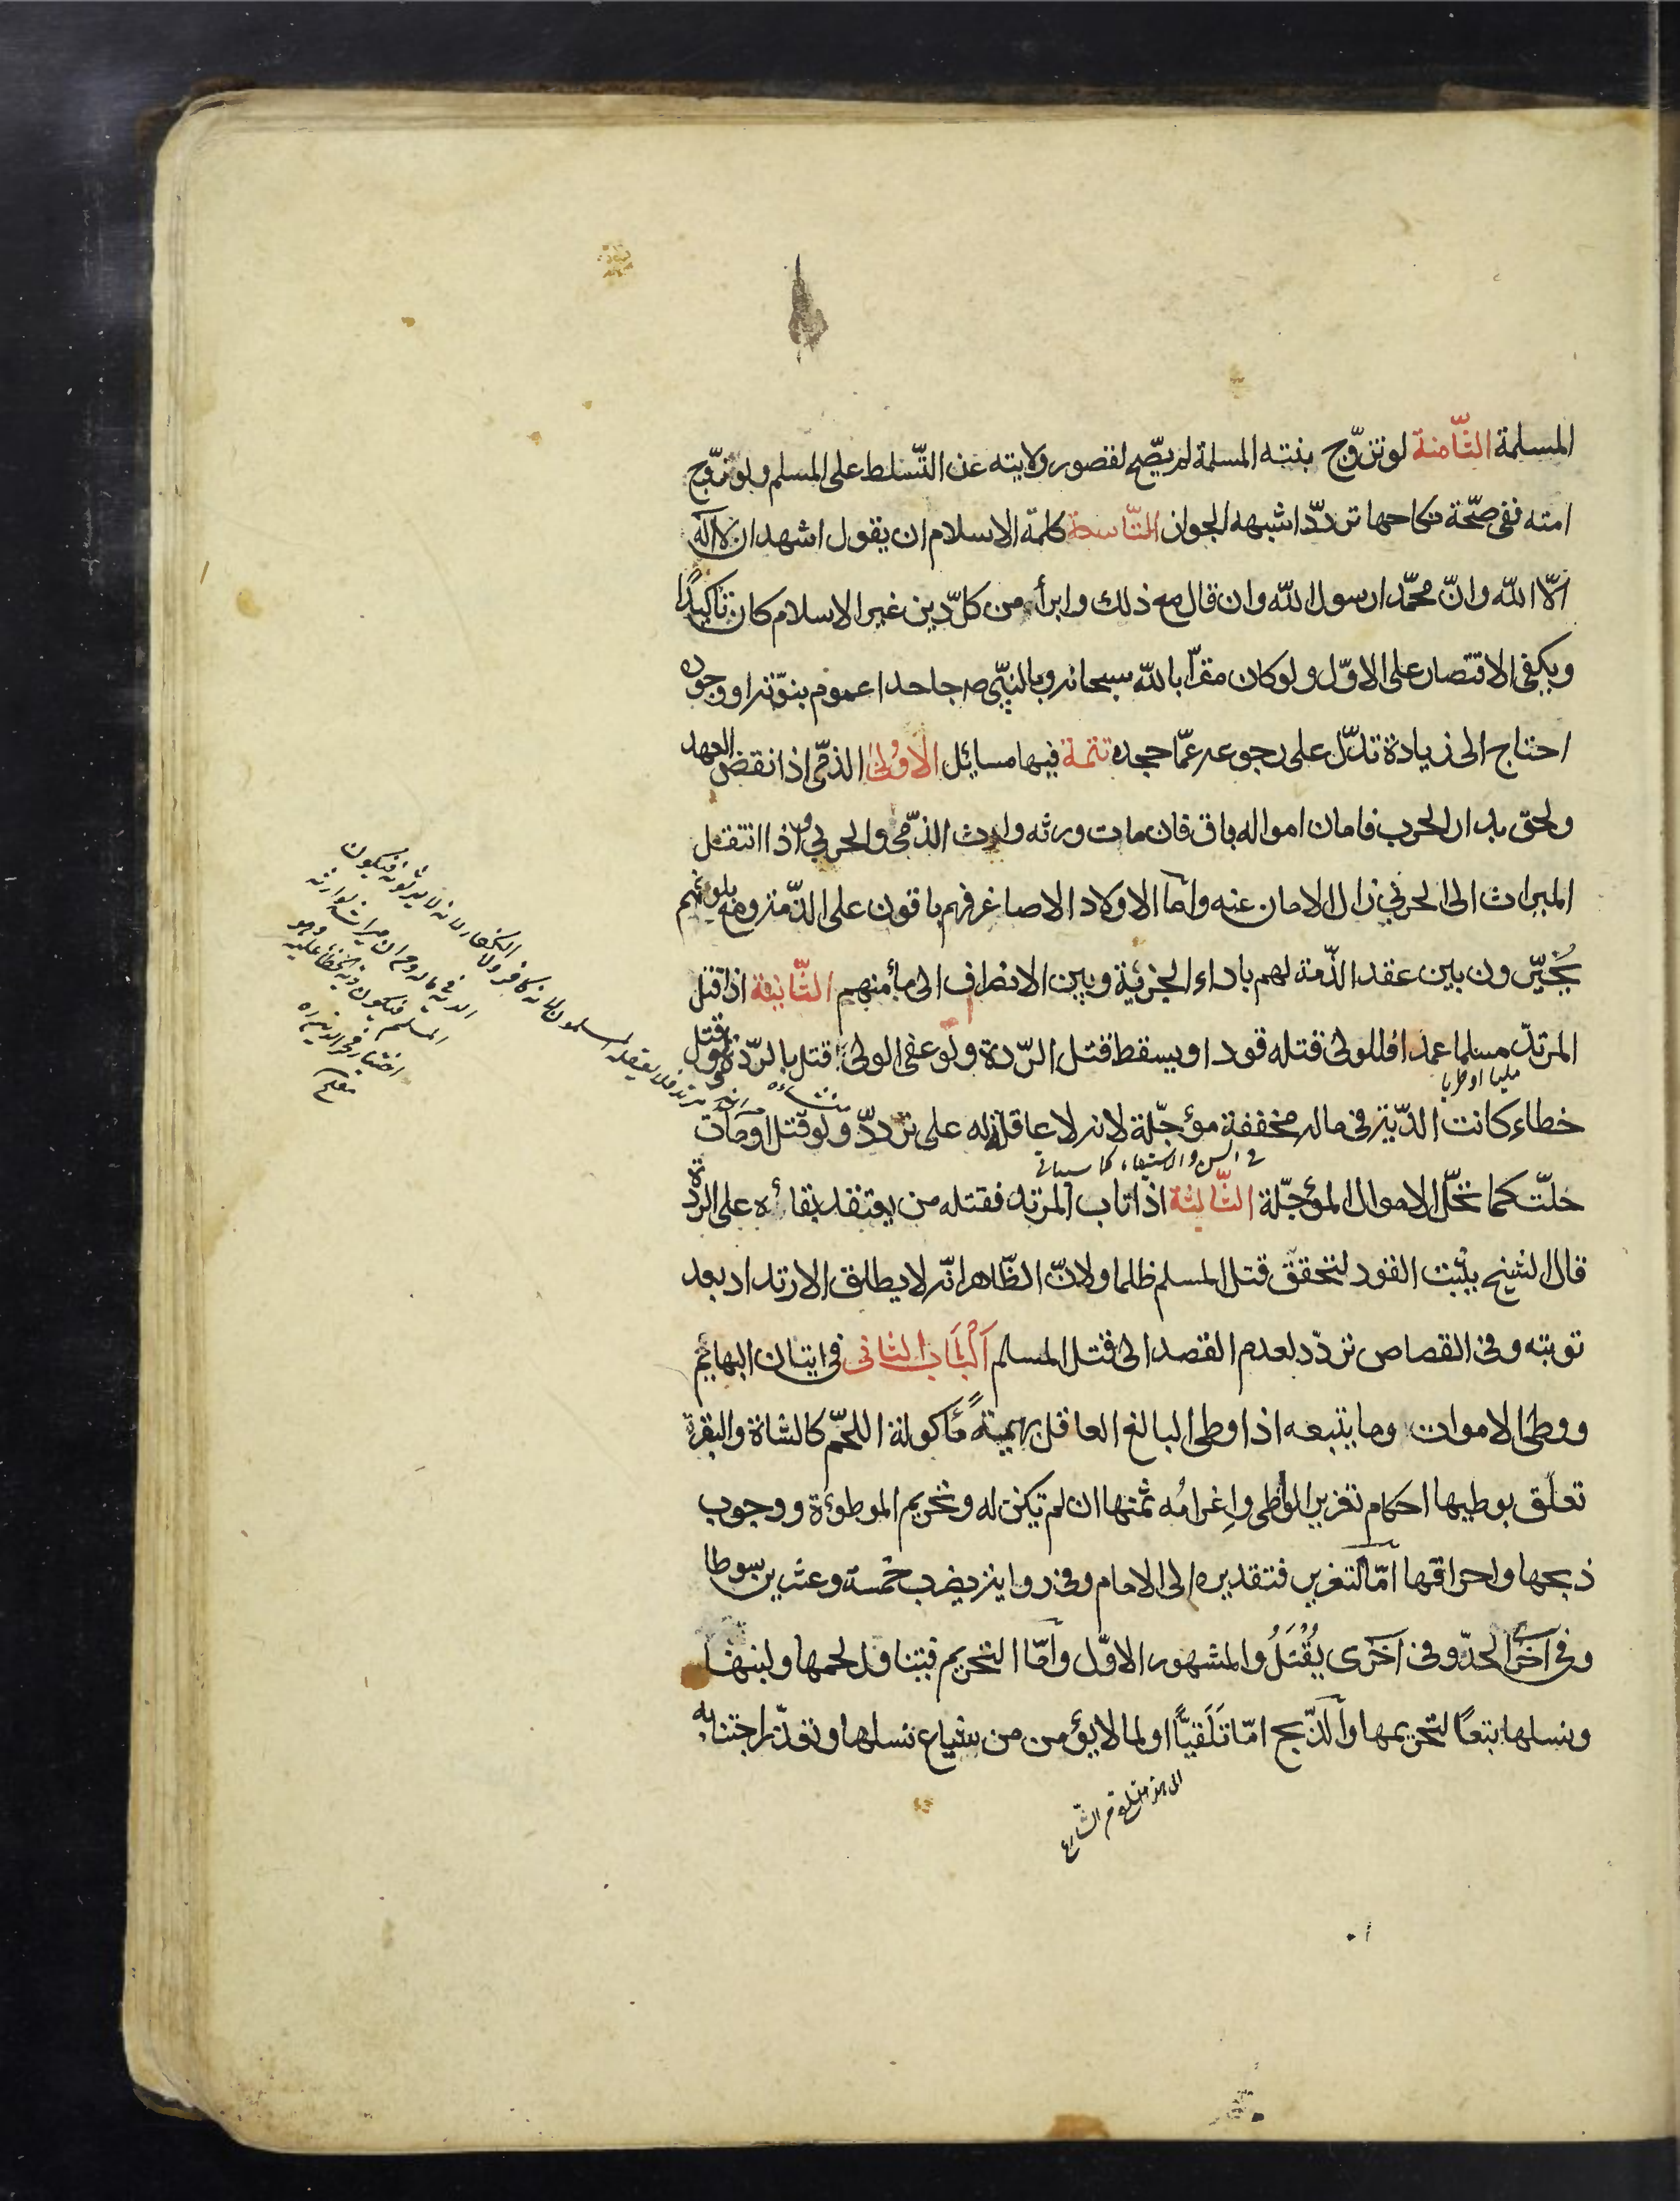 المسلمة الثّامنة لو تزوّج بنته المسلمة لم يصّح لقصور ولايته عن التّسلط على المسلم ولو زوّج
امته ففى صحّة نكاحها تردّد اشبهه الجواز التّاسعة كلمة الاسلام ان يقول اشهد ان لا اله
الّا اللّه وانّ محمّدا رسول اللّه وان قال مع ذلك وابرأ من كلّ دين غير الاسلام كان تاكيدًا
ويكفى الاقتصار على الاوّل ولو كان مقرّا باللّه سبحانه وبالنبّى ص جاحدا عموم نبوّته او وجوده
احتاج الى زيادة تدلّ على رجوعه عمّا جحده تتمة فيها مسائل الاُولىٰ الذمّى اذا نقض العهد
ولحق بدار الحرب فامان امواله باق فان مات ورثه وارث الذمّى والحربى واذا انتقل
الميراث الى الحربى زال الامان عنه وامّا الاولاد الاصاغر فهم باقون على الذّمة ومع بلوغهم
يُخيّرون بين عقد الذّمة لهم باداء الجزئية وبين الانصراف الى مأمنهم الثّانية اذا قتل
المرتدّ مسلما عمدا فللولىّ قتله قودا ويسقط قتل الرّدة ولو عفى الولىّ قتل بالرّدة ولو قتل
مليا او فطريا
خطاء كانت الدّية فى ماله مخففة مؤجّلة لانه لا عاقلة له على تردّد ولو قتل او مات
فى السن والاستيفاء كما سياتى
حلّت كما تحلّ الاموال المؤجّلة الثّالثة اذا تاب المرتد فقتله من يعتقد بقائه على الردة
قال الشيخ يثبت القود لتحقق قتل المسلم ظلما ولانّ الظّاهر انّه لا يطلق الارتداد بعد
توبته وفى القصاص تردّد لعدم القصد الى قتل المسلم اَلْبَاب الثانى فى اتيان البهائم
ووطى الاموات وما يتبعه اذا وطى البالغ العاقل بهيمةً مأكولة اللحّم كالشاة والبقرة
تعلّق بوطيها احكام تعزير الواطى واِغرامُه ثمنها ان لم تكن له وتحريم الموطوءة ووجوب
ذبحها واحراقها امّا التعزير فتقديره الى الامام وفى رواية يضرب خمسة وعشرين سوطا
وفى اخرى الحدّ وفى اخرى يُقْتَلُ والمشهور الاوّل وامّا التحريم فيتناول لحمها ولبنها
ونسلها تبعًا لتحريمها والذّبح امّا تَلَقّيًا او لما لا يؤمن من شياع نسلها وتعذّر اجتنابه
المسلمون لانه كافر ولا الكفار لانه لا يرثونه فيكون
الدية فى ماله وم ان ميراثه لوارثه
المسلم فيكون دية الخطا عليه وهو
اختيار فخر الدين ره